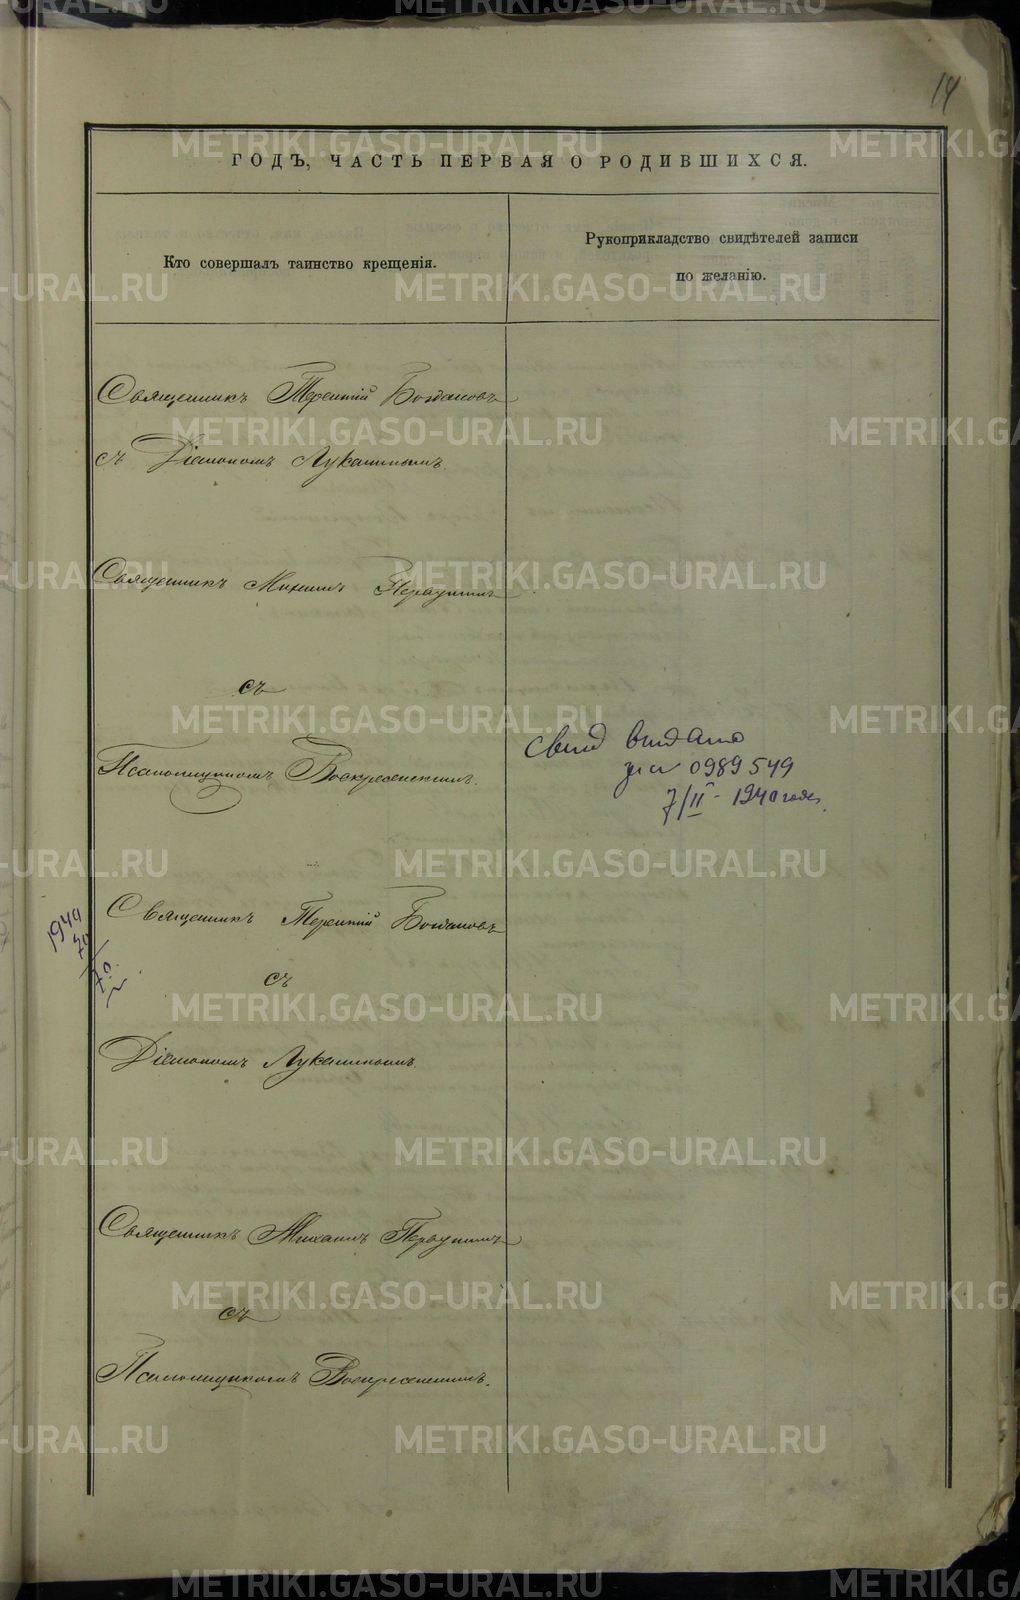 14
ГОДЪ, ЧАСТЬ ПЕРВАЯ О РОДИВШИХСЯ.
Кто совершалъ таинство крещенія.
Рукоприкладство свидѣтелей записи
по желанію.
Священникъ Терентій Богдановъ
съ Діакономъ Лукашинымъ.
Священникъ Михаилъ Первушинъ
съ
Псаломщикомъ Воскресенскимъ.
свид выдано
за № 0989549
7/II - 1940 года.
Священникъ Терентій Богдановъ
съ
Діакономъ Лукашинымъ.
1944
Священникъ Михаилъ Первушинъ
съ
Псаломщикомъ Воскресенскимъ.
METRIKI.GASO-URAL.RU